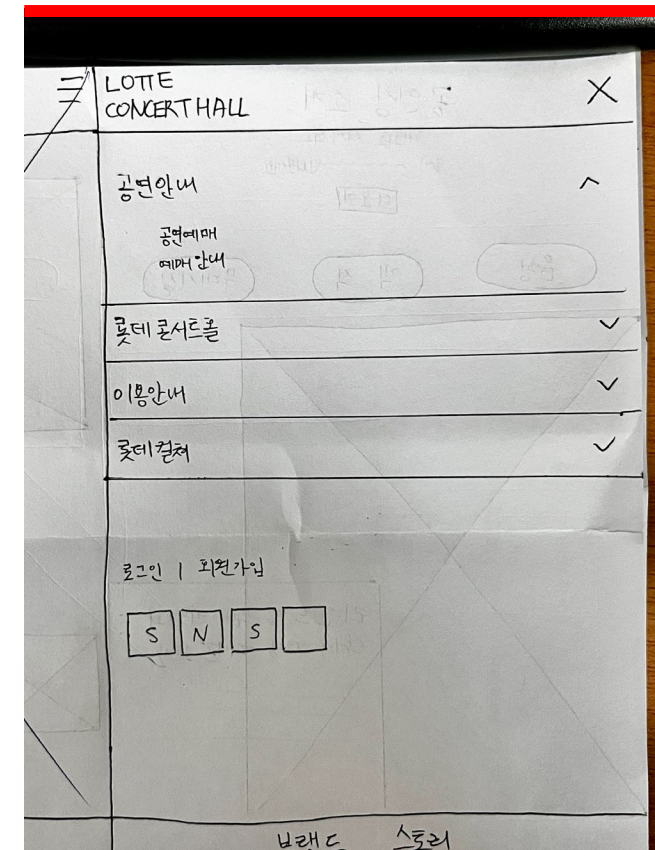 LOTTE
CONCERT HALL
공연안내
공연예매
예매안내
롯데콘서트홀
이용안내
롯데컬쳐
로그인 | 회원가입
S N S
브랜드 스토리